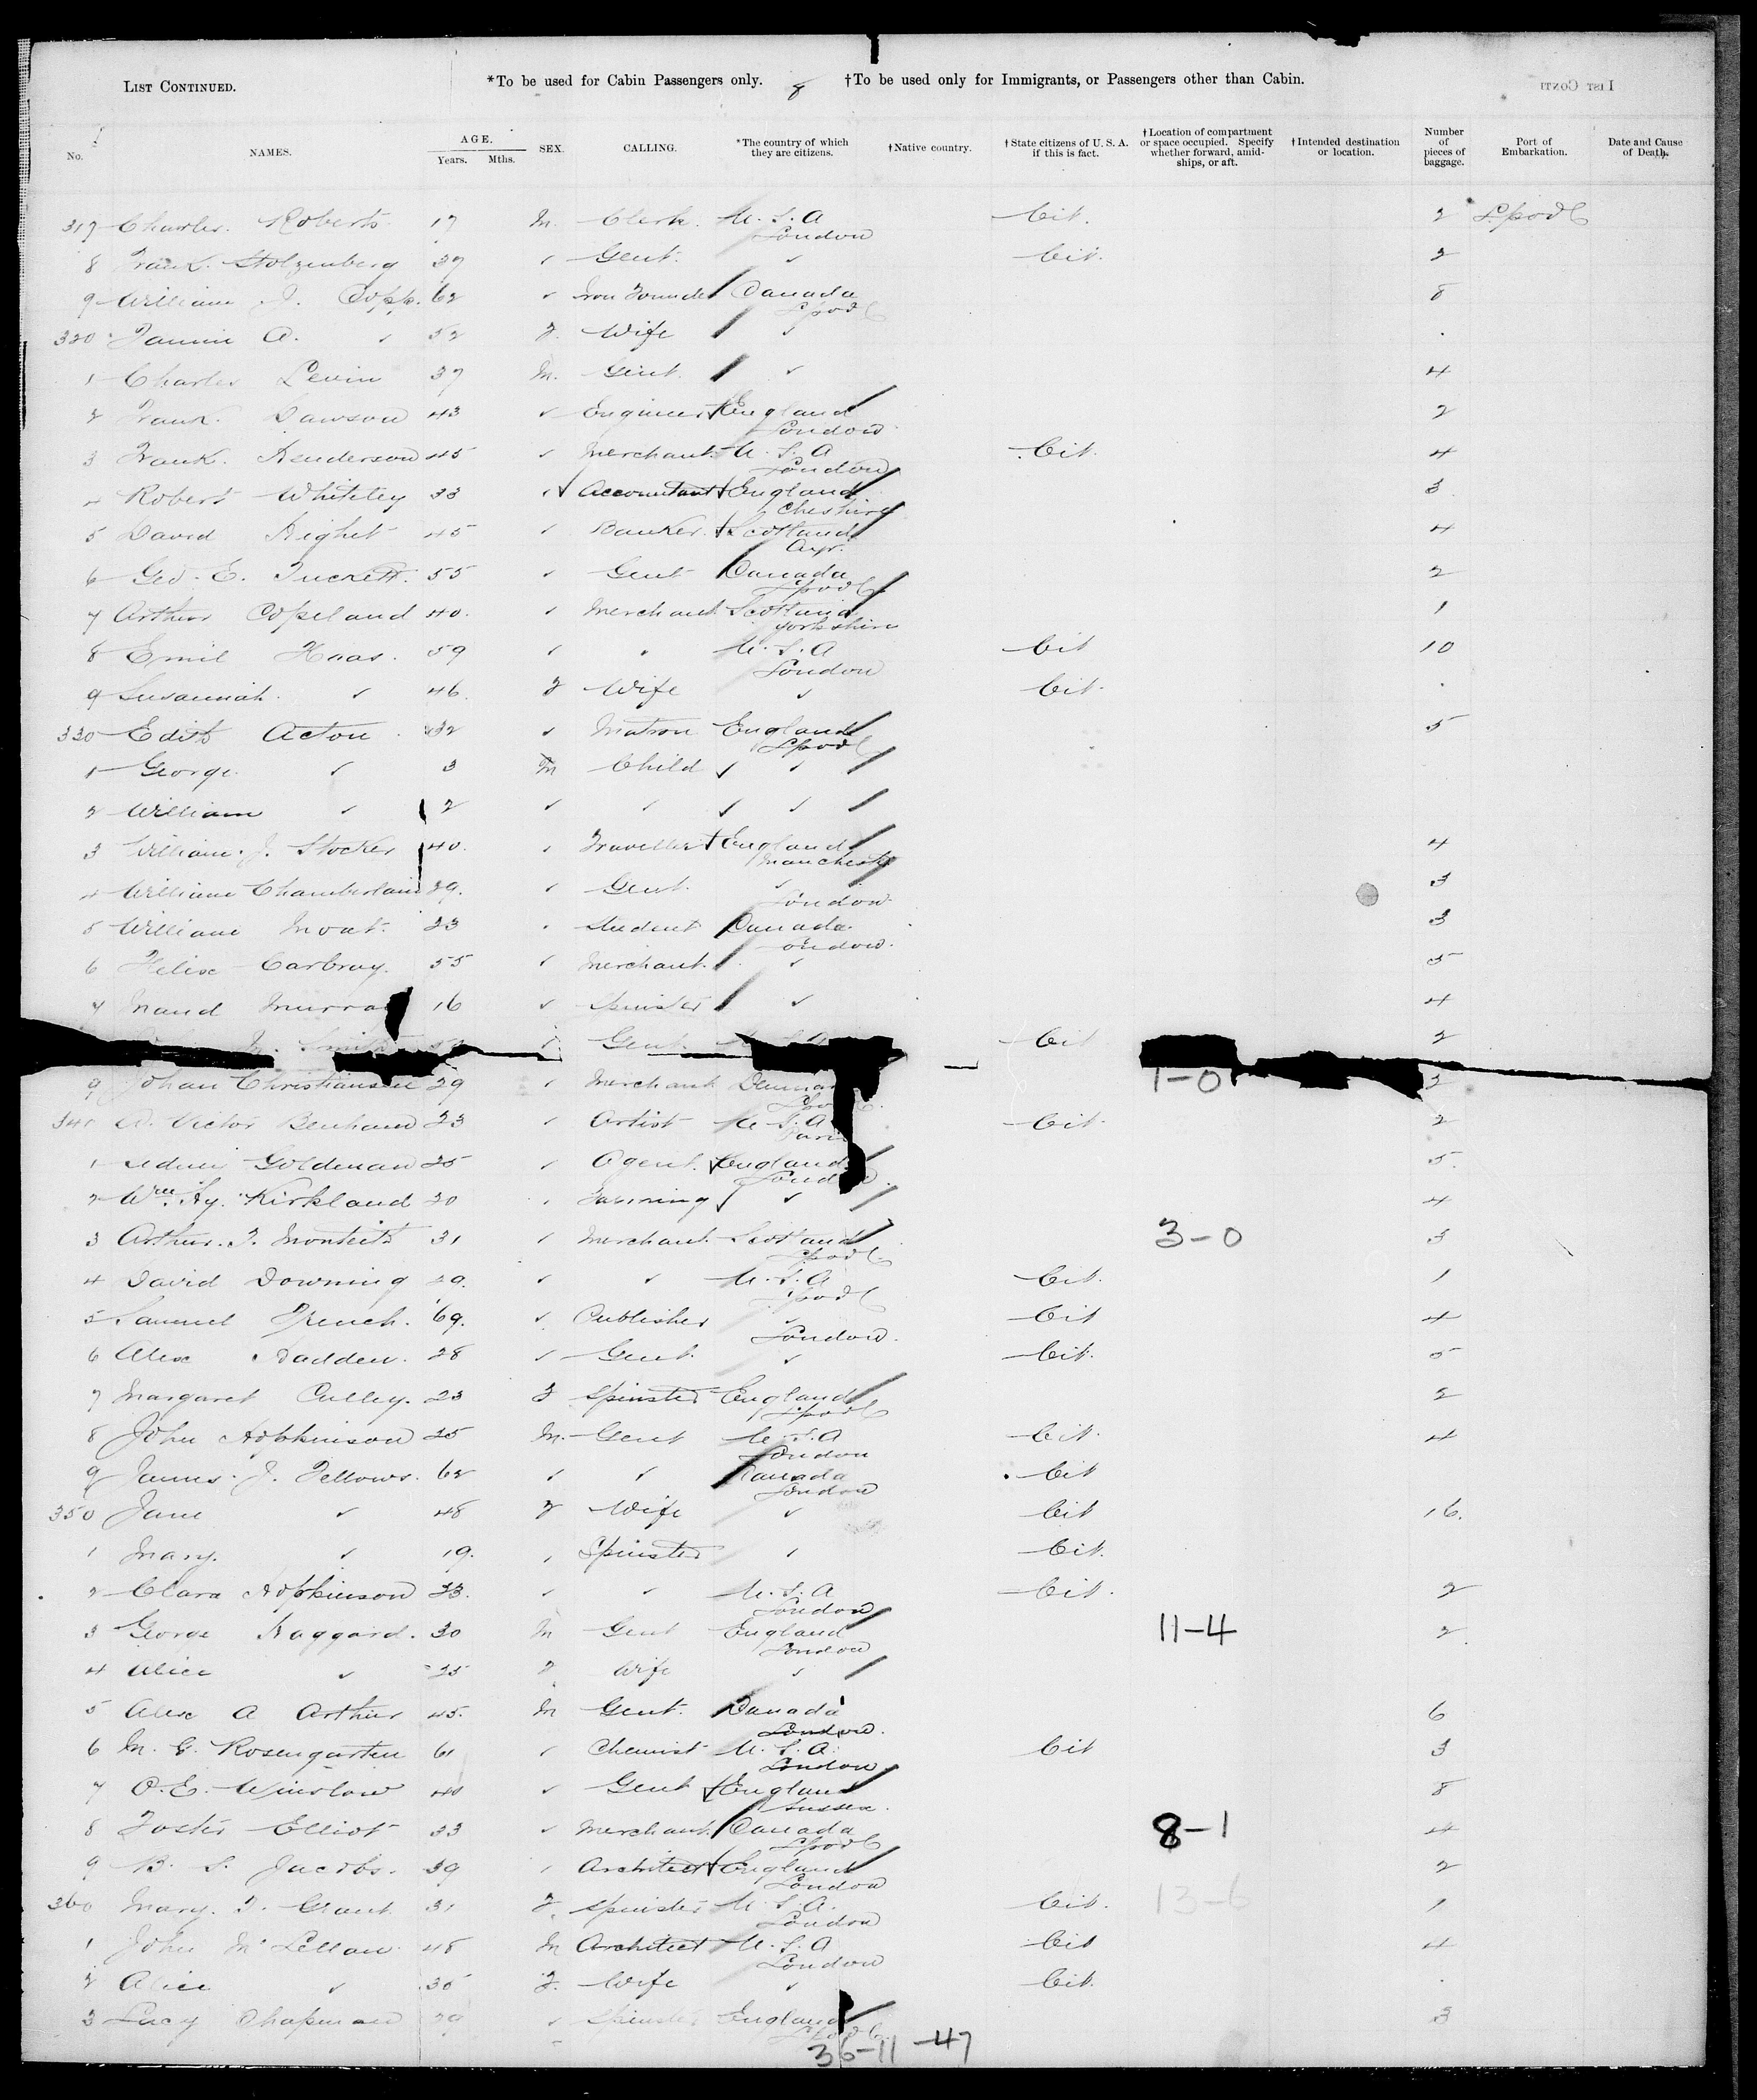 LIST CONTINUED. *To be used for Cabin Passengers only. 8 †To be used only for Immigrants, or Passengers other than Cabin.
No. NAMES. AGE. Years. Mths. SEX. CALLING. *The country of which they are citizens. †Native country. †State citizens of U. S. A. if this is fact. †Location of compartment or space occupied. Specify whether forward, amidships, or aft. †Intended destination or location. Number of pieces of baggage. Port of Embarkation. Date and Cause of Death.
317 Charles Roberts 17 M. Clerk. U.S.A Cit. 2 L'pool
London
8 Frank Stolzenberg 37 " Gent. " Cit. 2
9 William J. Copp. 62 " Iron Founder Canada 8
L'pool
320 Fannie A. " 52 F. Wife "
1 Charles Levin 37 M. Gent. " 4
2 Frank Dawson 43 " Engineer England 2
London
3 Frank Henderson 45 " Merchant U.S.A Cit. 4
London
4 Robert Whiteley 33 " Accountant England 3
Cheshire
5 David Highet 45 " Banker Scotland 4
Ayr.
6 Geo. E. Tuckett. 55 " Gent Canada 2
L'pool
7 Arthur Copeland 40. " Merchant Scotland 1
Yorkshire
8 Emil Haas. 59 " " U.S.A Cit 10
London
9 Susannah " 46. F Wife " Cit.
330 Edith Acton 32 " Matron England 5
L'pool
1 George " 3 M Child " "
2 William " 2 " " " "
3 William J. Stocker 40. " Traveller England 4
Manchester
4 William Chamberlain 29. " Gent. " 3
London
5 William Moat. 23 " Student Canada. 3
London.
6 Felix Carbray. 55 " Merchant. " 5
7 Maud Murray 16 " Spinster " 4
M. Smith " Gent. Cit 2
9 Johan Christiansen 29 " Merchant Denmark 1-0 2
L'pool.
340 W. Victor Benham 23 " Artist U.S.A Cit. 2
Paris
1 Goldman 25 " Agent. England 5.
London.
2 Wm. Hy. Kirkland 20 " Farming " 4
3 Arthur. F. Monteith 31 " Merchant Scotland 3-0 3
L'pool
4 David Downing 29. " " U.S.A Cit. 1
L'pool
5 Samuel French. 69. " Publisher " Cit 4
London.
6 Alex Hadden. 28 " Gent. " Cit. 5
7 Margaret Culley. 23 F Spinster England 2
L'pool
8 John Hopkinson 25 M. Gent U.S.A Cit. 4
London
9 James. J. Fellows. 62 " " Canada Cit
London
350 Jane " 48 F Wife " Cit 16.
1 Mary. " 19. " Spinster " Cit.
2 Clara Hopkinson 23. " " U.S.A Cit. 2
London
3 George Haggard. 30 M Gent England 11-4 2
London
4 Alice " 25 F. Wife "
5 Alex A Arthur 45. M Gent. Canada 6
London.
6 M. G. Rosengarten 61 " Chemist U.S.A. Cit 3
London
7 O. E. Winslow 40 " Gent England 8
Sussex.
8 Foster Elliot 33 " Merchant Canada 8-1 4
L'pool
9 B. S. Jacobs. 39 " Architect England 2
London
360 Mary. F. Grant 31 F. Spinster U.S.A. Cit. 13-6 1
London
1 John McLellan 48 M Architect U.S.A Cit 4
London
2 Alice " 35 F. Wife " Cit.
3 Lucy Chapman 29 " Spinster England 3
L'pool.
36-11-47